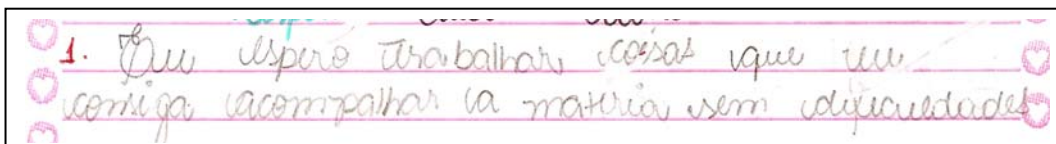 1. Eu espero trabalhar coisas que eu
consiga acompanhar a materia sem dificuldades